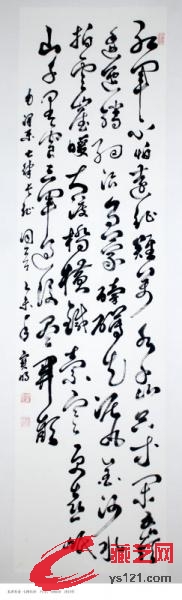 紅軍不怕遠征難萬水千山只等閑五嶺
逶迤騰細浪烏蒙磅礴走泥丸金沙水
拍雲崖暖大渡橋橫鐵索寒更喜岷
山千里雪三軍過後盡開顏
毛澤東七律長征
藏王网
ys121.com